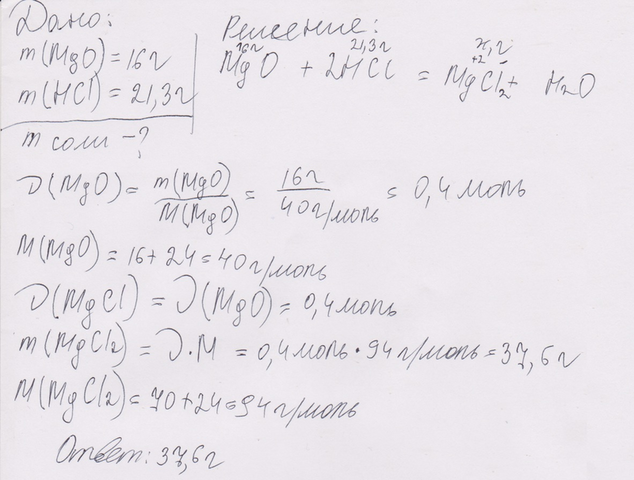 Дано:
m(MgO)=16г
m(HCl)=21,3г
m соли -?
Решение:
16г 21,3г x, г
+2 -
MgO + 2HCl = MgCl2 + H2O
υ(MgO) = m(MgO)/M(MgO) = 16г/40г/моль = 0,4моль
M(MgO)=16+24=40г/моль
υ(MgCl) = υ(MgO) = 0,4моль
m(MgCl2) = υ·M = 0,4моль·94г/моль=37,6г
M(MgCl2)=70+24=94г/моль
Ответ: 37,6г